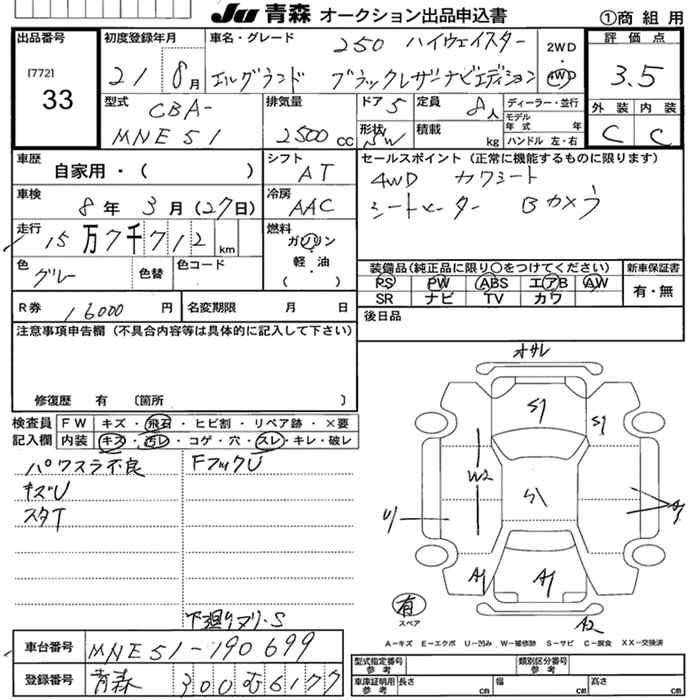 JU 青森 オークション出品申込書 ①商 組 用
出品番号
[772]
33
初度登録年月
21 8月
車名・グレード
250 ハイウェイスター
エルグランド ブラックレザーナビエディション
2WD
・
4WD
評価点
3.5
外装 内装
C C
型式
CBA-
MNE51
排気量
2500 cc
ドア 5
形状 SW
定員 8人
積載 kg
ディーラー・並行
モデル年式 年
ハンドル 左・右
車歴
自家用・( )
シフト
AT
セールスポイント(正常に機能するものに限ります)
4WD カワシート
シートヒーター Bカメラ
車検
8年 3月(27日)
冷房
AAC
走行
15万7千712km
燃料
ガソリン
・
軽・油
( )
色
グレー
色替
色コード
装備品(純正品に限り○をつけてください)
PS PW ABS エアB AW
SR ナビ TV カワ
新車保証書
有・無
R券 16000円
名変期限 月 日
後日品
注意事項申告欄(不具合内容等は具体的に記入して下さい)
修復歴 有 〔箇所 〕
検査員
記入欄
FW キズ・飛石・ヒビ割・リペア跡・×要
内装 キズ・汚レ・コゲ・穴・スレ・キレ・破レ
パワスラ不良 FフックU
キズU
スタT
下廻りヌリ・S
オサレ
S1
S1
W2
S1
U1
A1
A1
A1
A2
有
スペア
A-キズ E-エクボ U-凹み W-補修跡 S-サビ C-腐食 XX-交換済
車台番号 MNE51-190699
登録番号 青森 300 む 6177
型式指定番号
参考
類別区分番号
参考
車庫証明用
参考
長さ cm 幅 cm 高さ cm